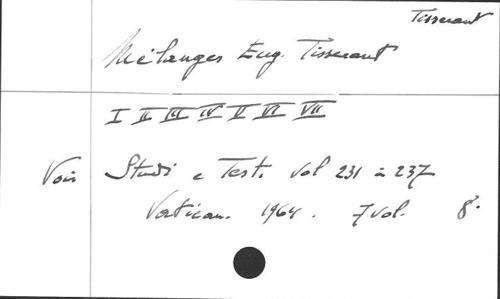 Tisserant
Mélanges Eug. Tisserant
I II III IV V VI VII
Voir Studi e Test. Vol 231 à 237
Vatican. 1964. 7 vol. 8°